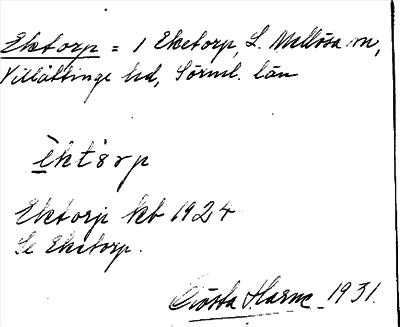 Ektorp = 1 Eketorp, L. Mellösa sn,
Villåttinge hd, Sörml. län
èktǝrp
Ektorp kb 1924
Se Eketorp.
Gösta Harne 1931.